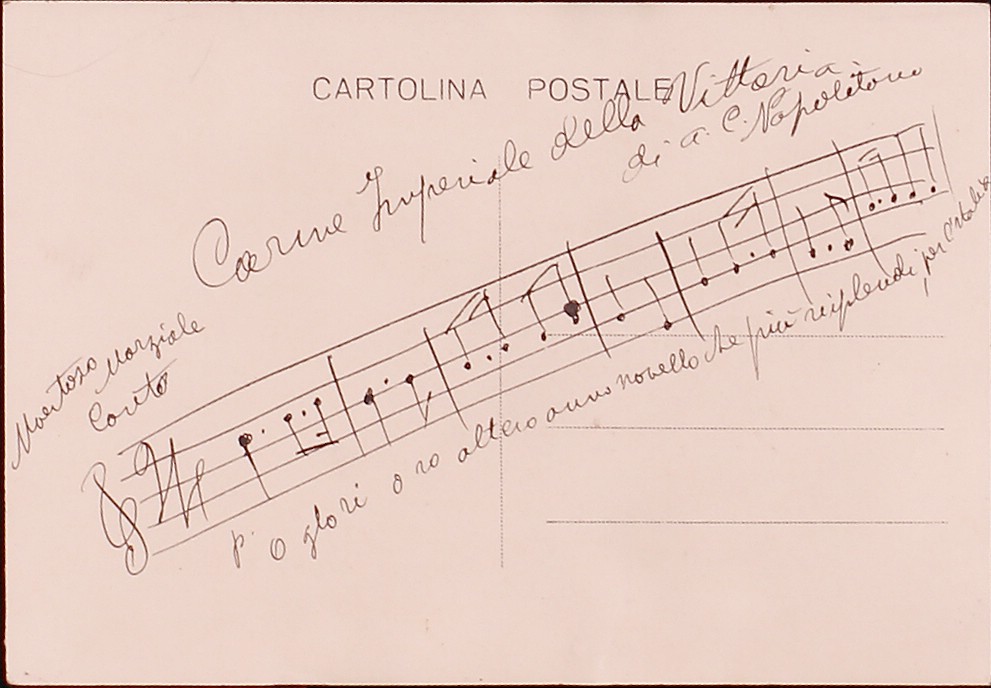 CARTOLINA POSTALE
Carme Imperiale della Vittoria
di A. C. Napolitano
Maestoso Marziale
Canto
p. O glori o so altero anno novello che più risplendi per l'Italia